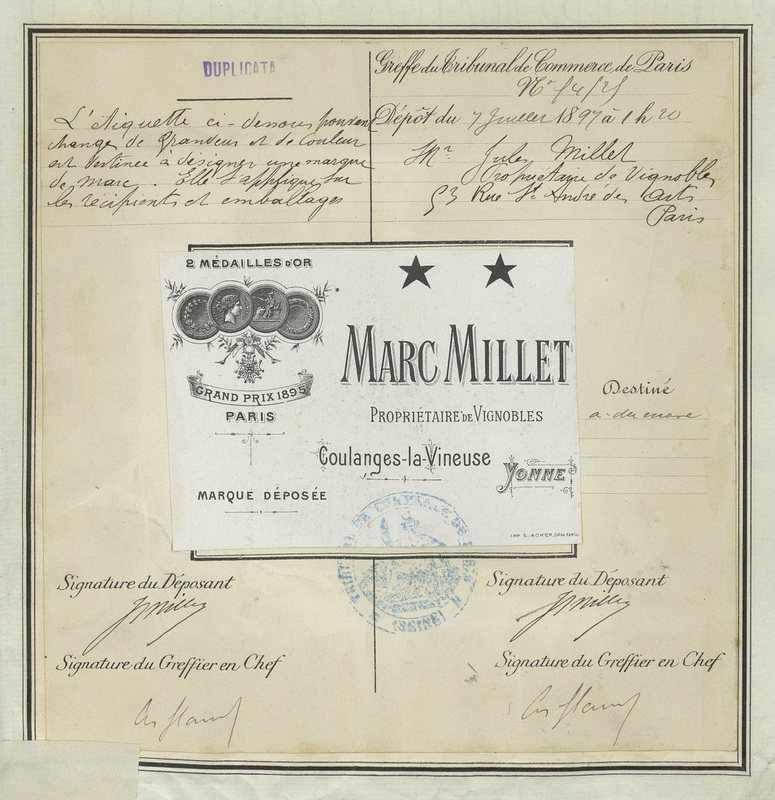 DUPLICATA
L'étiquette ci-dessous pouvant
changer de grandeur et de couleur
est destinée à désigner une marque
de marc. Elle s'applique sur
les récipients et emballages
Greffe du Tribunal de Commerce de Paris
Nº
Dépôt du 7 Juillet 1897 à 1 h 20
Mr Jules Millet
Propriétaire de Vignobles
53 Rue St André des Arts
Paris
2 MÉDAILLES D'OR
GRAND PRIX 1895
PARIS
MARQUE DÉPOSÉE
MARC MILLET
PROPRIÉTAIRE DE VIGNOBLES
Coulanges-la-Vineuse
YONNE
IMP. E. ACKER, PARIS
Destiné
à du marc
TRIBUNAL DE COMMERCE DE
(SEINE)
Signature du Déposant
JMillet
Signature du Greffier en Chef
Signature du Déposant
JMillet
Signature du Greffier en Chef